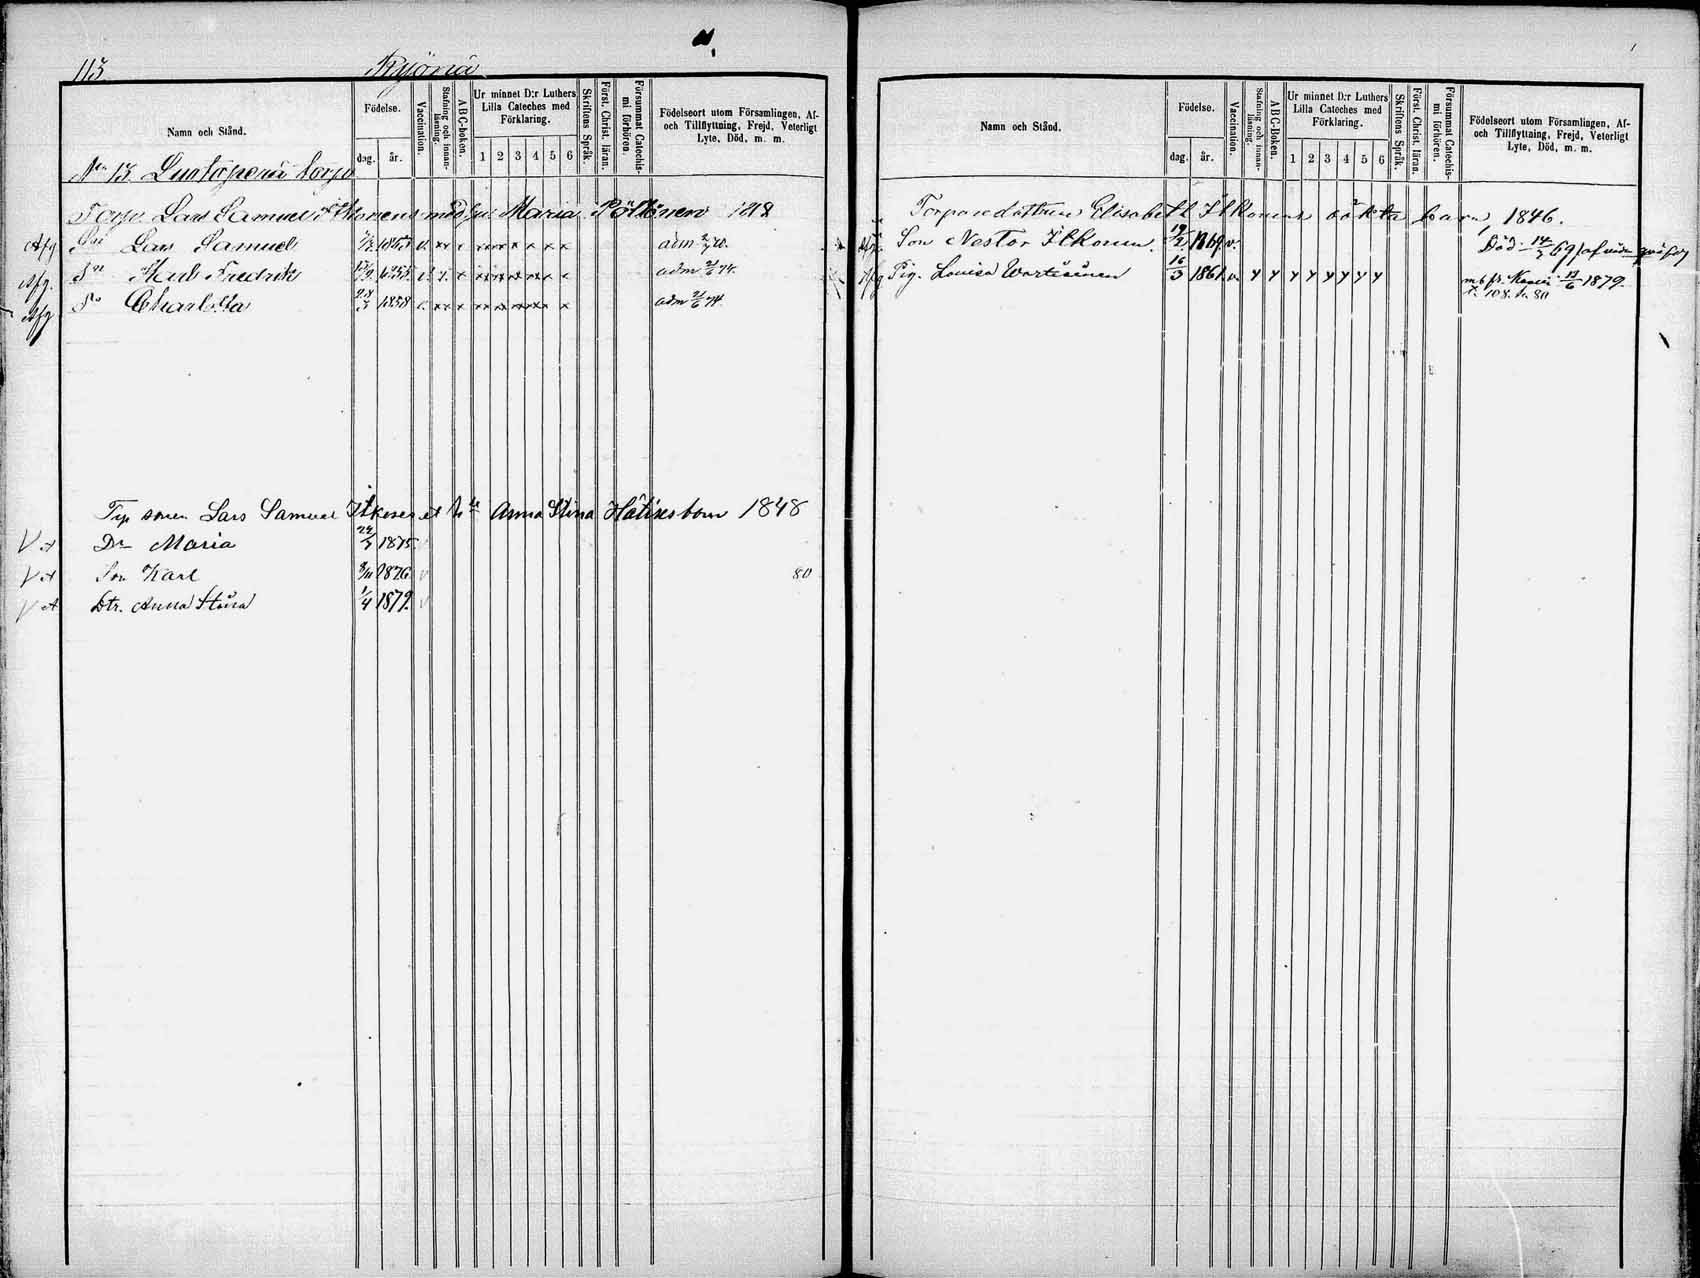 113.
Ryönä
Namn och Stånd.
Födelse.
dag. år.
Vaccination.
Stafning och innanläsning.
ABC-boken.
Ur minnet D:r Luthers Lilla Cateches med Förklaring.
1 2 3 4 5 6
Skriftens Språk.
Först. Christ. läran.
Försummat Catechismi förhören.
Födelseort utom Församlingen, Af- och Tillflyttning, Frejd, Veterligt Lyte, Död, m. m.
No 13. torp
Torp. Lars Samuel Ilkonens med hu. Maria Pöllönen 1818
Afg Son Lars Samuel v. x x x x x x x x x adm
Afg. Sn Karl Fredrik 1855 v. x x x x x x x x x adm 21/6 74.
Afg Charlotta 1858 v. x x x x x x x x x adm 21/6 74
Torp sonen Lars Samuel Ilkonen et h:u Anna Stina Hätinen barn 1848
V A Dr Maria 22/3 1875. v
V A Son Karl 3/11 1876 v 80
V A Dtr. Anna Stina 1/4 1879. v
Namn och Stånd.
Födelse.
dag. år.
Vaccination.
Stafning och innanläsning.
ABC-Boken.
Ur minnet D:r Luthers Lilla Cateches med Förklaring.
1 2 3 4 5 6
Skriftens Språk.
Först. Christ. läran.
Försummat Catechismi förhören.
Födelseort utom Församlingen, Af- och Tillflyttning, Frejd, Veterligt Lyte, Död, m. m.
Torparedottren Elisabeth Ilkonens oäkta barn, 1846.
Son Nestor Ilkonen 19/2 1869. v. Död 14/3 69
Afg Pig. Lovisa Wartiainen 16/3 1861. v. y y y y y y y y m b fr. 13/6 1879.
108. 80